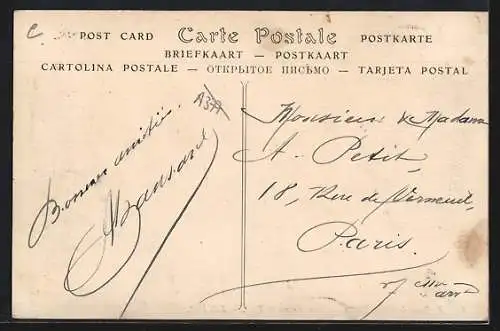 C
POST CARD Carte Postale POSTKARTE
BRIEFKAART — POSTKAART
CARTOLINA POSTALE — ОТКРЫТОЕ ПИСЬМО — TARJETA POSTAL
A377
Bonne amitié.
Monsieur & Madame
A. Petit,
18, Rue de Verneuil,
Paris.
7 arrt